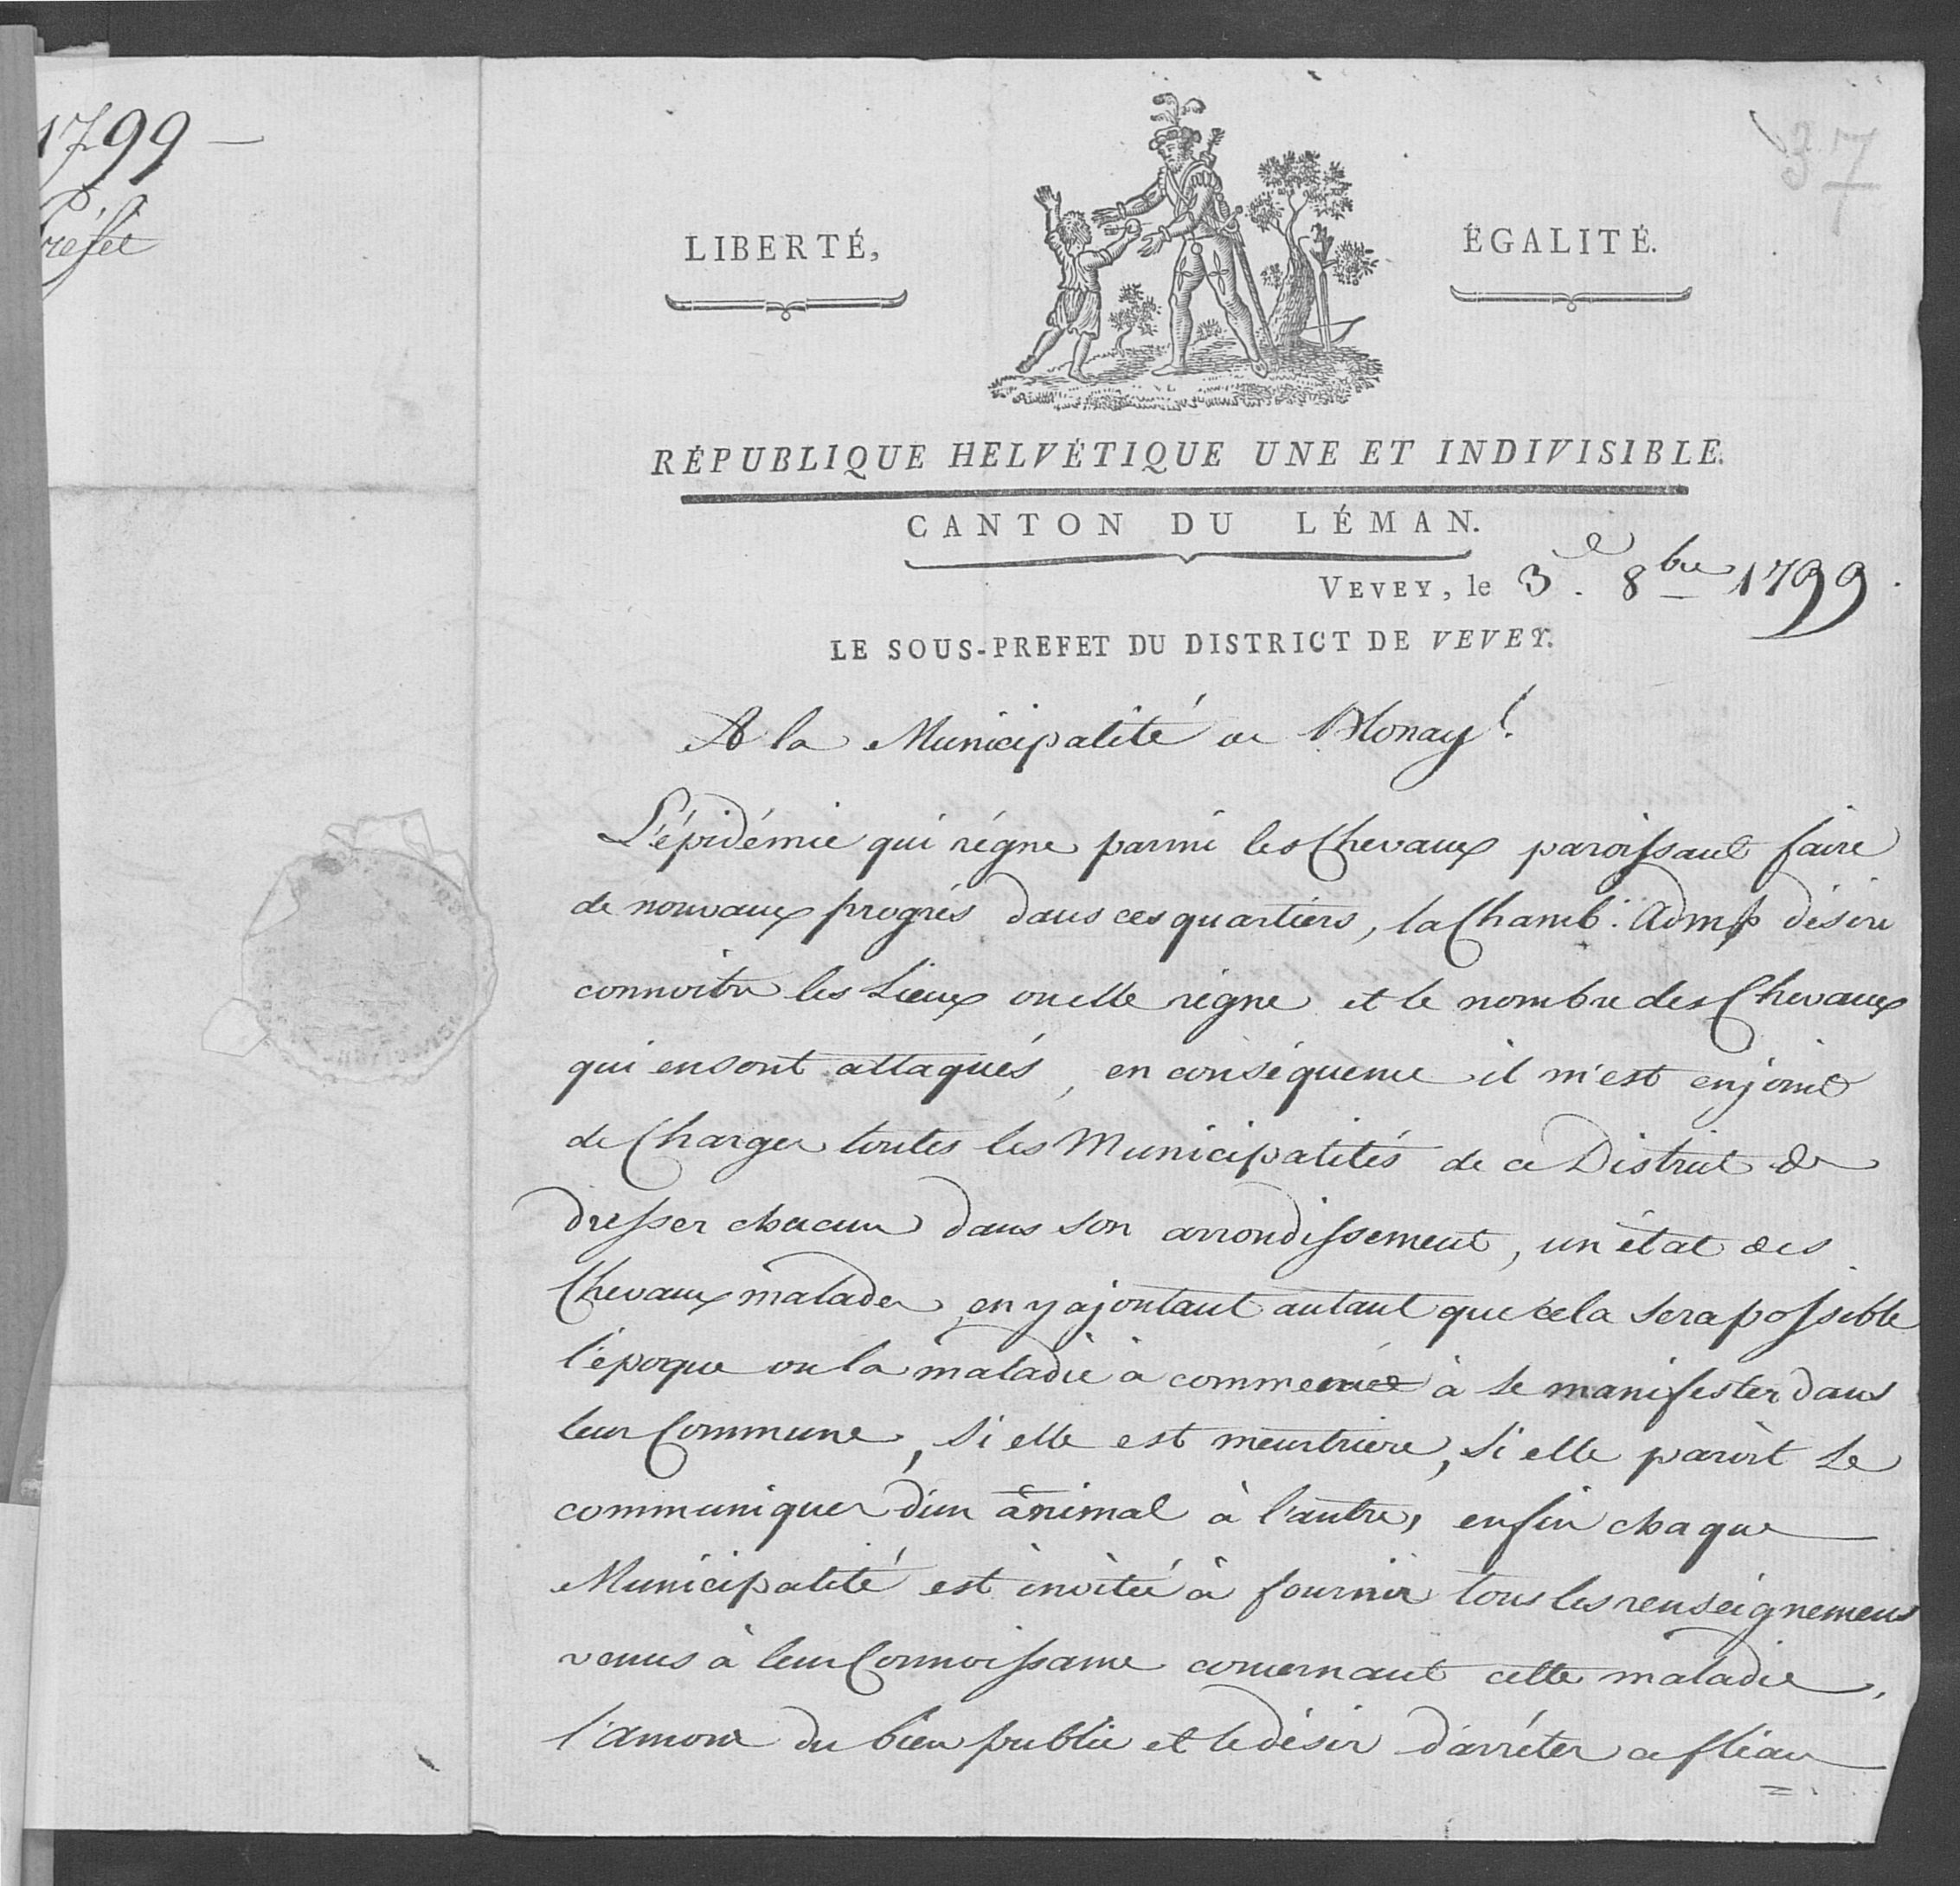 1799
Préfet
37
LIBERTÉ,
ÉGALITÉ.
RÉPUBLIQUE HELVÉTIQUE UNE ET INDIVISIBLE.
CANTON DU LÉMAN.
VEVEY, le 3e. 8bre 1799.
LE SOUS-PREFET DU DISTRICT DE VEVEY.
A la Municipalité de Blonay!
L'épidémie qui régne parmi les Chevaux paroissant faire
de nouvaux progrés dans ces quartiers, la Chamb. Adm désire
connoitre les Lieux ou elle règne et le nombre des Chevaux
qui en sont attaqués, en conséquence il m'est enjoint
de Charger toutes les Municipalités de ce District de
dresser chacun dans son arrondissement, un état des
Chevaux malades, en y ajoutant autant que cela sera possible
l'époque ou la maladie à commencé à se manifester dans
leur Commune, Si elle est meurtriere, Si elle paroit se
communiquer d'un animal à l'autre, enfin chaque
Municipalité est invitée à fournir tous les renseignemens
venus à leur Connoissance concernant cette maladie,
l'amour du bien public et le désir d'arréter ce fléau